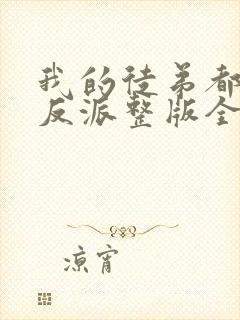 我的徒弟都
反派整版全
凉宵